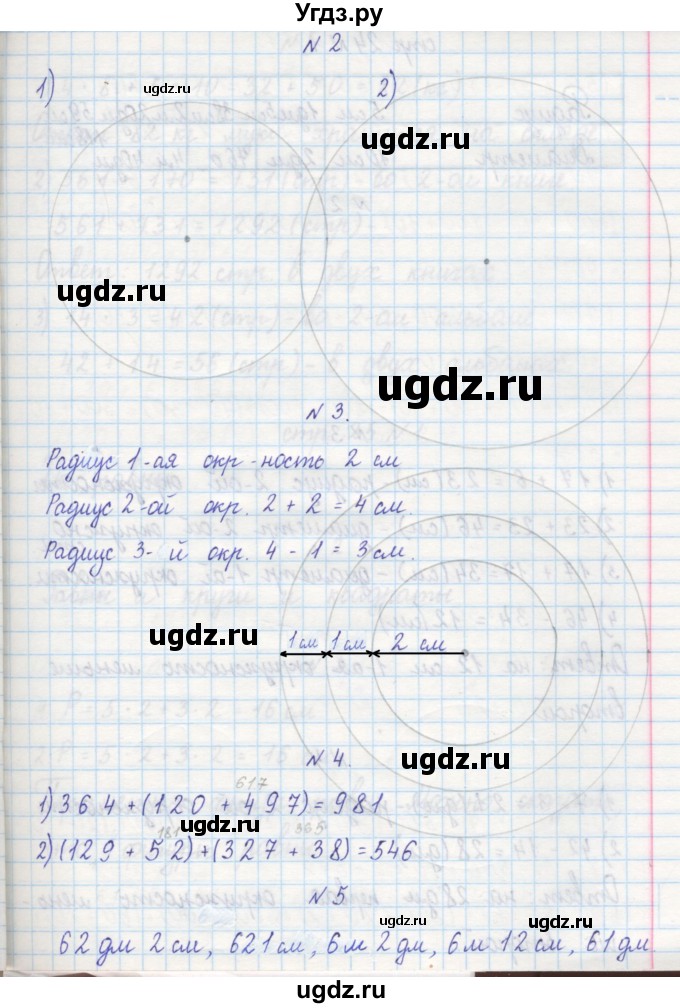 Угдз.ру
N 2
1) 2)
ugdz.ru
ugdz.ru
ugdz.ru
N 3.
Радиус 1-ая окр-ность 2 см
Радиус 2-ой окр. 2 + 2 = 4 см.
Радиус 3-й окр. 4 - 1 = 3 см.
ugdz.ru
1 см 1 см 2 см
N 4.
ugdz.ru
617
1) 364 + (120 + 497) = 981
ugdz.ru
181 365
2) (129 + 52) + (327 + 38) = 546
N 5
ugdz.ru
ugdz.ru
62 дм 2 см, 621 см, 6 м 2 дм, 6 м 12 см, 61 дм.
ugdz.ru